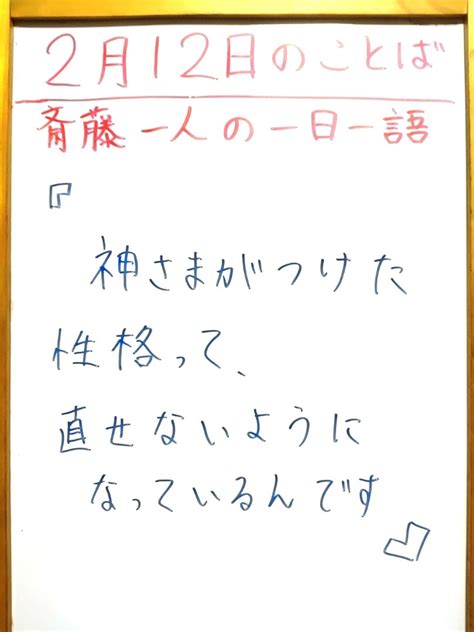 2月12日のことば
斎藤一人の一日一語
『
神さまがつけた
性格って、
直せないように
なっているんです
』